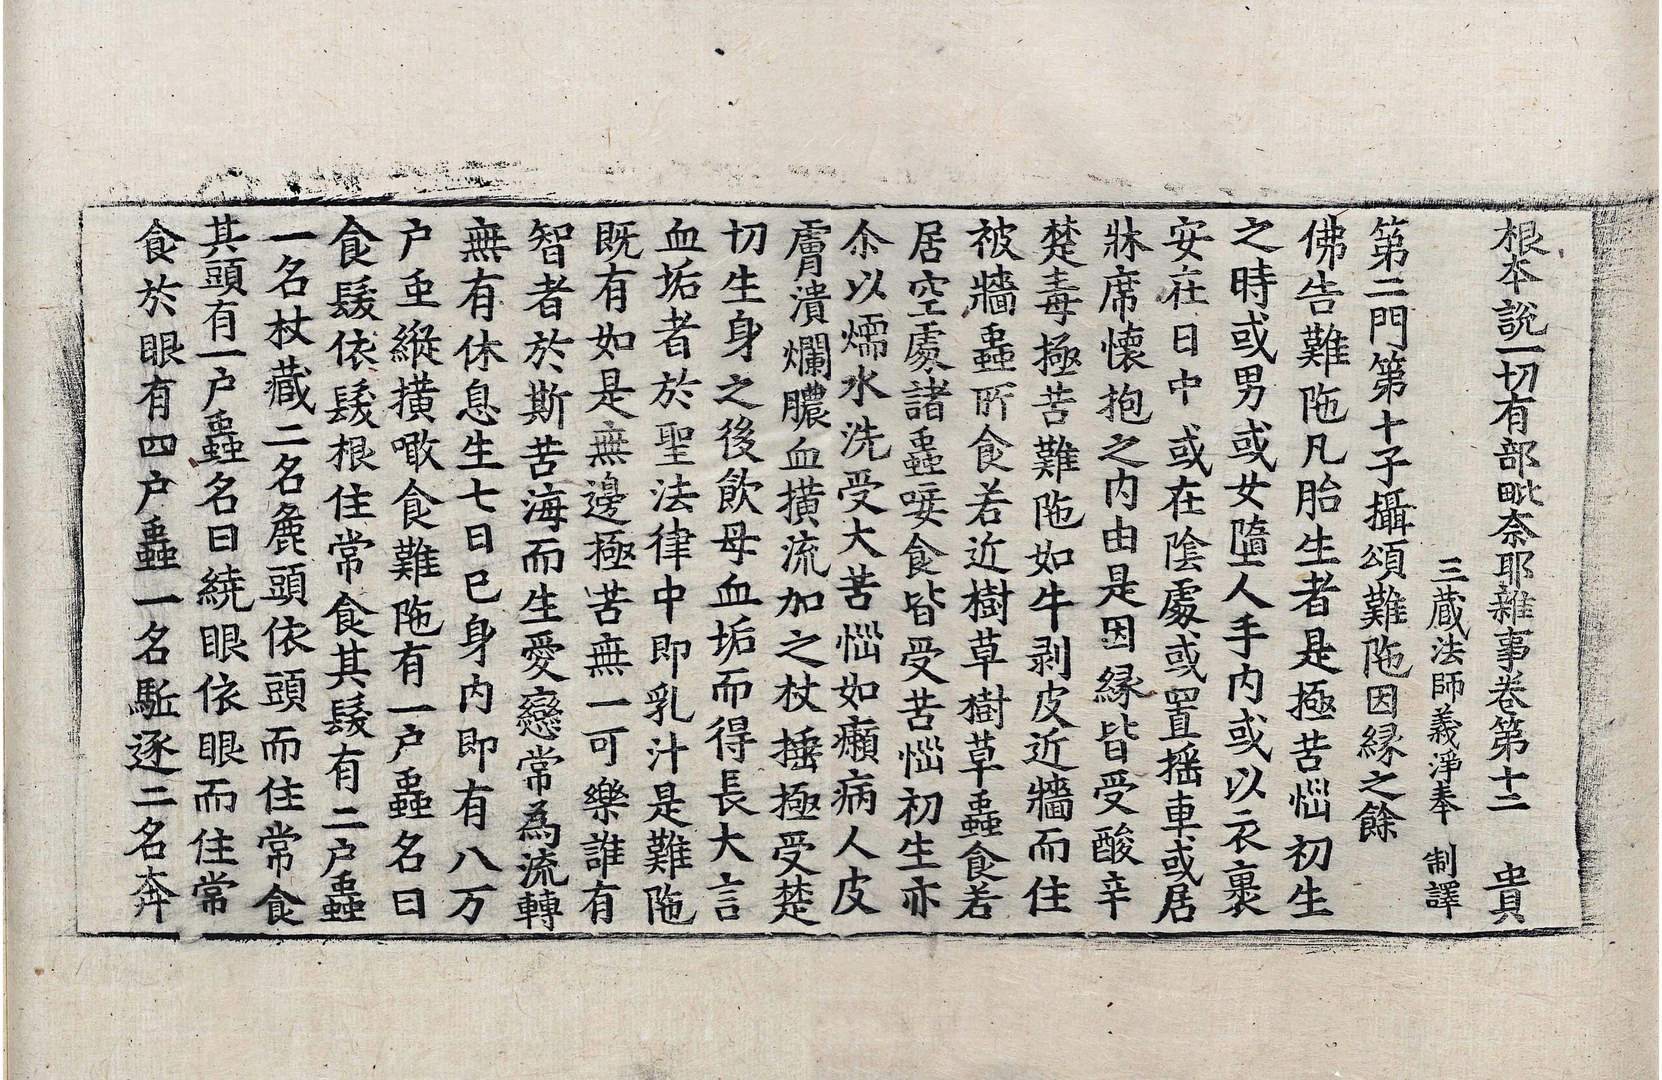 根本說一切有部毗奈耶雜事卷第十二　貴
三藏法師義淨奉　制譯
第二門第十子攝頌難陁因緣之餘
佛告難陁凡胎生者是極苦惱初生
之時或男或女墮人手內或以衣裹
安在日中或在陰處或置搖車或居
牀席懷抱之內由是因緣皆受酸辛
楚毒極苦難陁如牛剥皮近牆而住
被牆蟲所食若近樹草樹草蟲食若
居空處諸蟲唼食皆受苦惱初生亦
尒以煗水洗受大苦惱如癩病人皮
膚潰爛膿血橫流加之杖捶極受楚
切生身之後飲母血垢而得長大言
血垢者於聖法律中即乳汁是難陁
既有如是無邊極苦無一可樂誰有
智者於斯苦海而生愛戀常為流轉
無有休息生七日已身內即有八万
户虫縱橫噉食難陁有一户蟲名曰
食髮依髮根住常食其髮有二户蟲
一名杖藏二名麁頭依頭而住常食
其頭有一户蟲名曰繞眼依眼而住常
食於眼有四户蟲一名駈逐二名奔